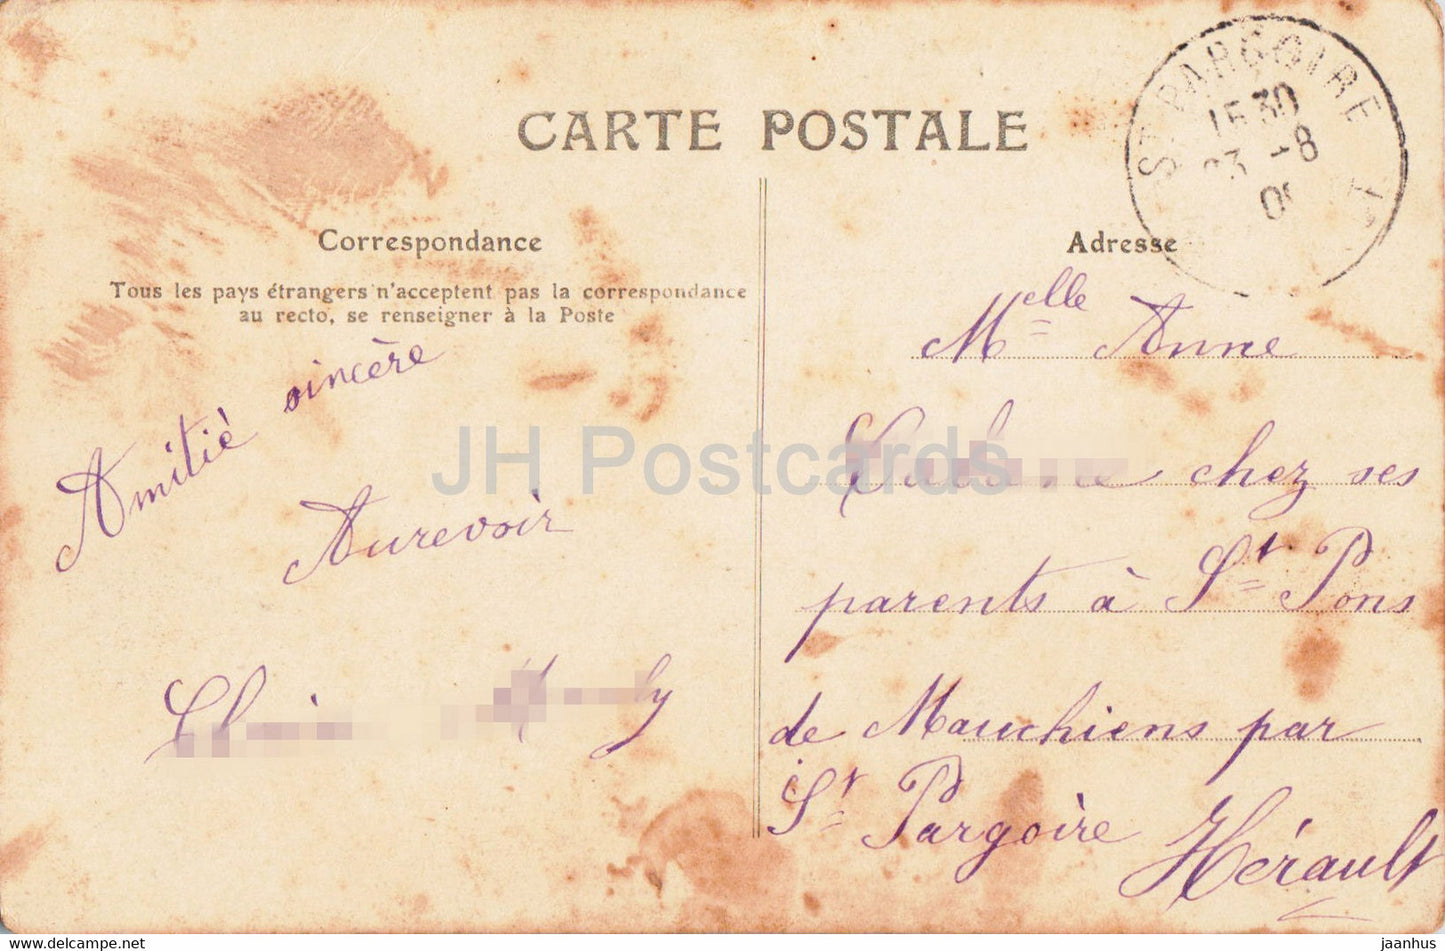 CARTE POSTALE
ST PARGOIRE
15 30
-8
Correspondance
Tous les pays étrangers n'acceptent pas la correspondance
au recto, se renseigner à la Poste
Amitié sincère
Aurevoir
Adresse
Melle Anne
chez ses
parents à St Pons
de Mauchiens par
St Pargoire Hérault
JH Postcards
hippostcard.com
jaanhus